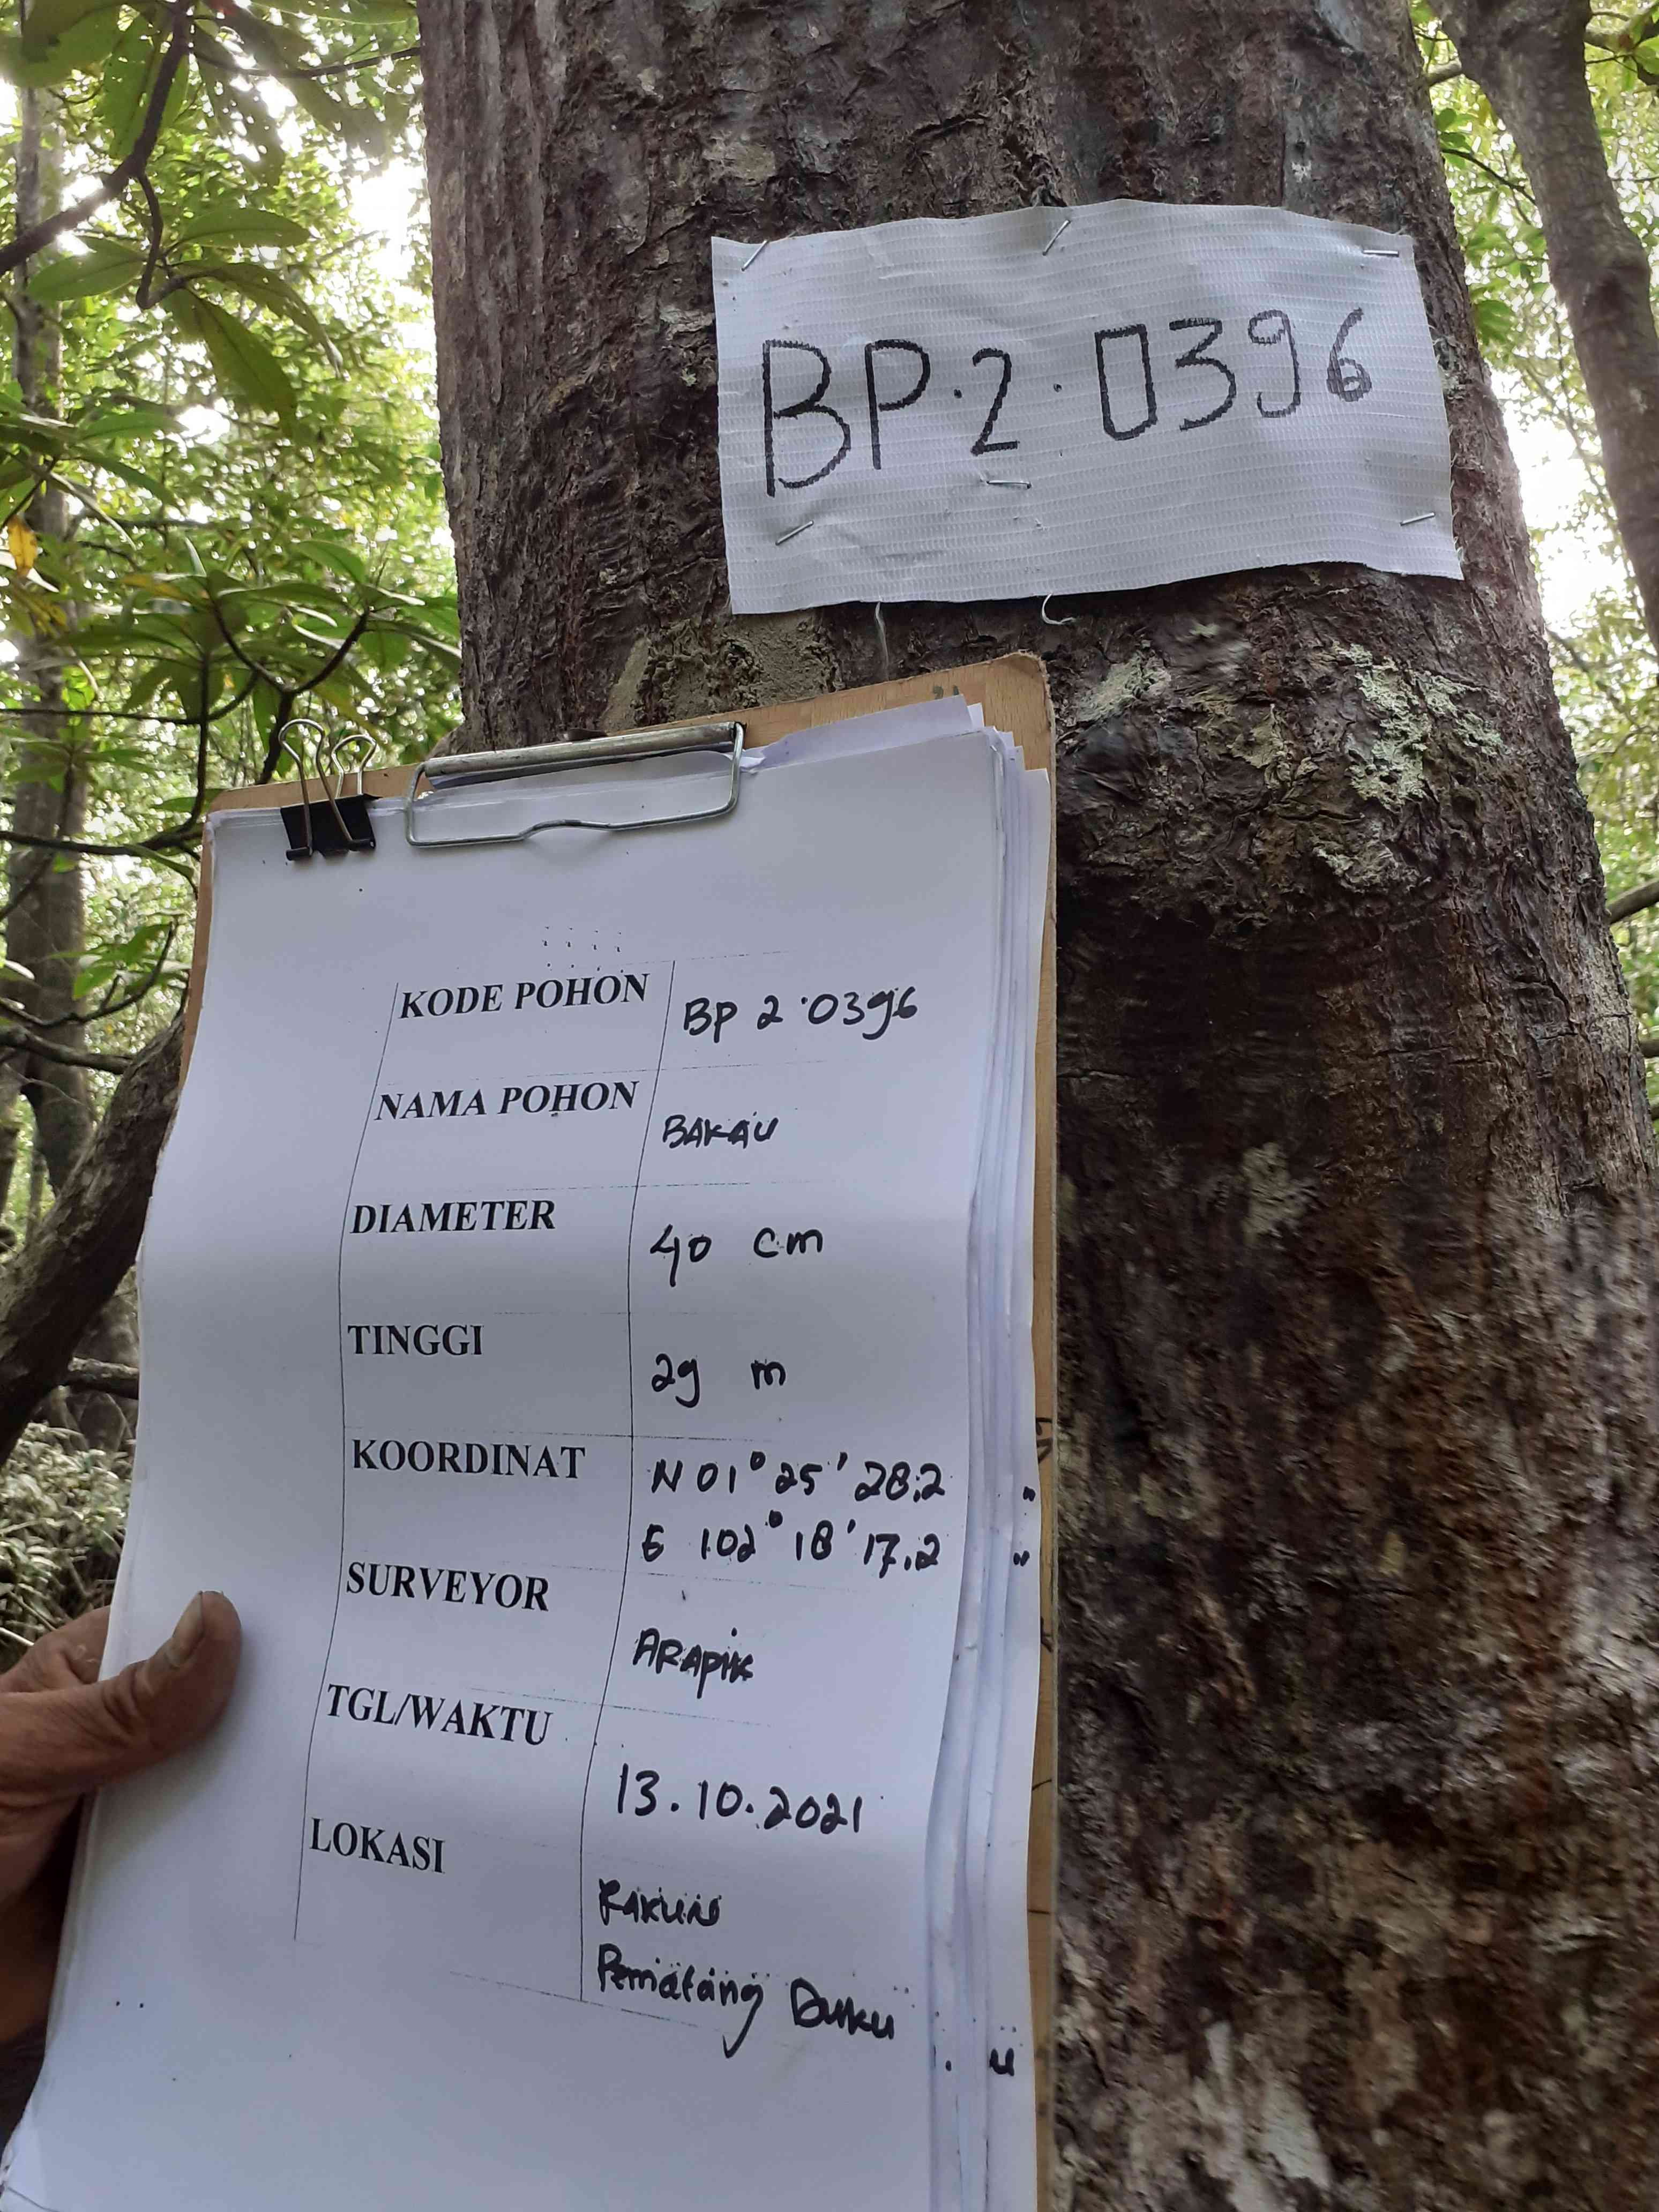 BP.2.0396
KODE POHON BP 2.0396
NAMA POHON BAKAU
DIAMETER 40 cm
TINGGI 29 m
KOORDINAT N 01° 25' 28.2"
E 102° 18' 17.2"
SURVEYOR ARAPIK
TGL/WAKTU 13.10.2021
LOKASI
Pematang Duku